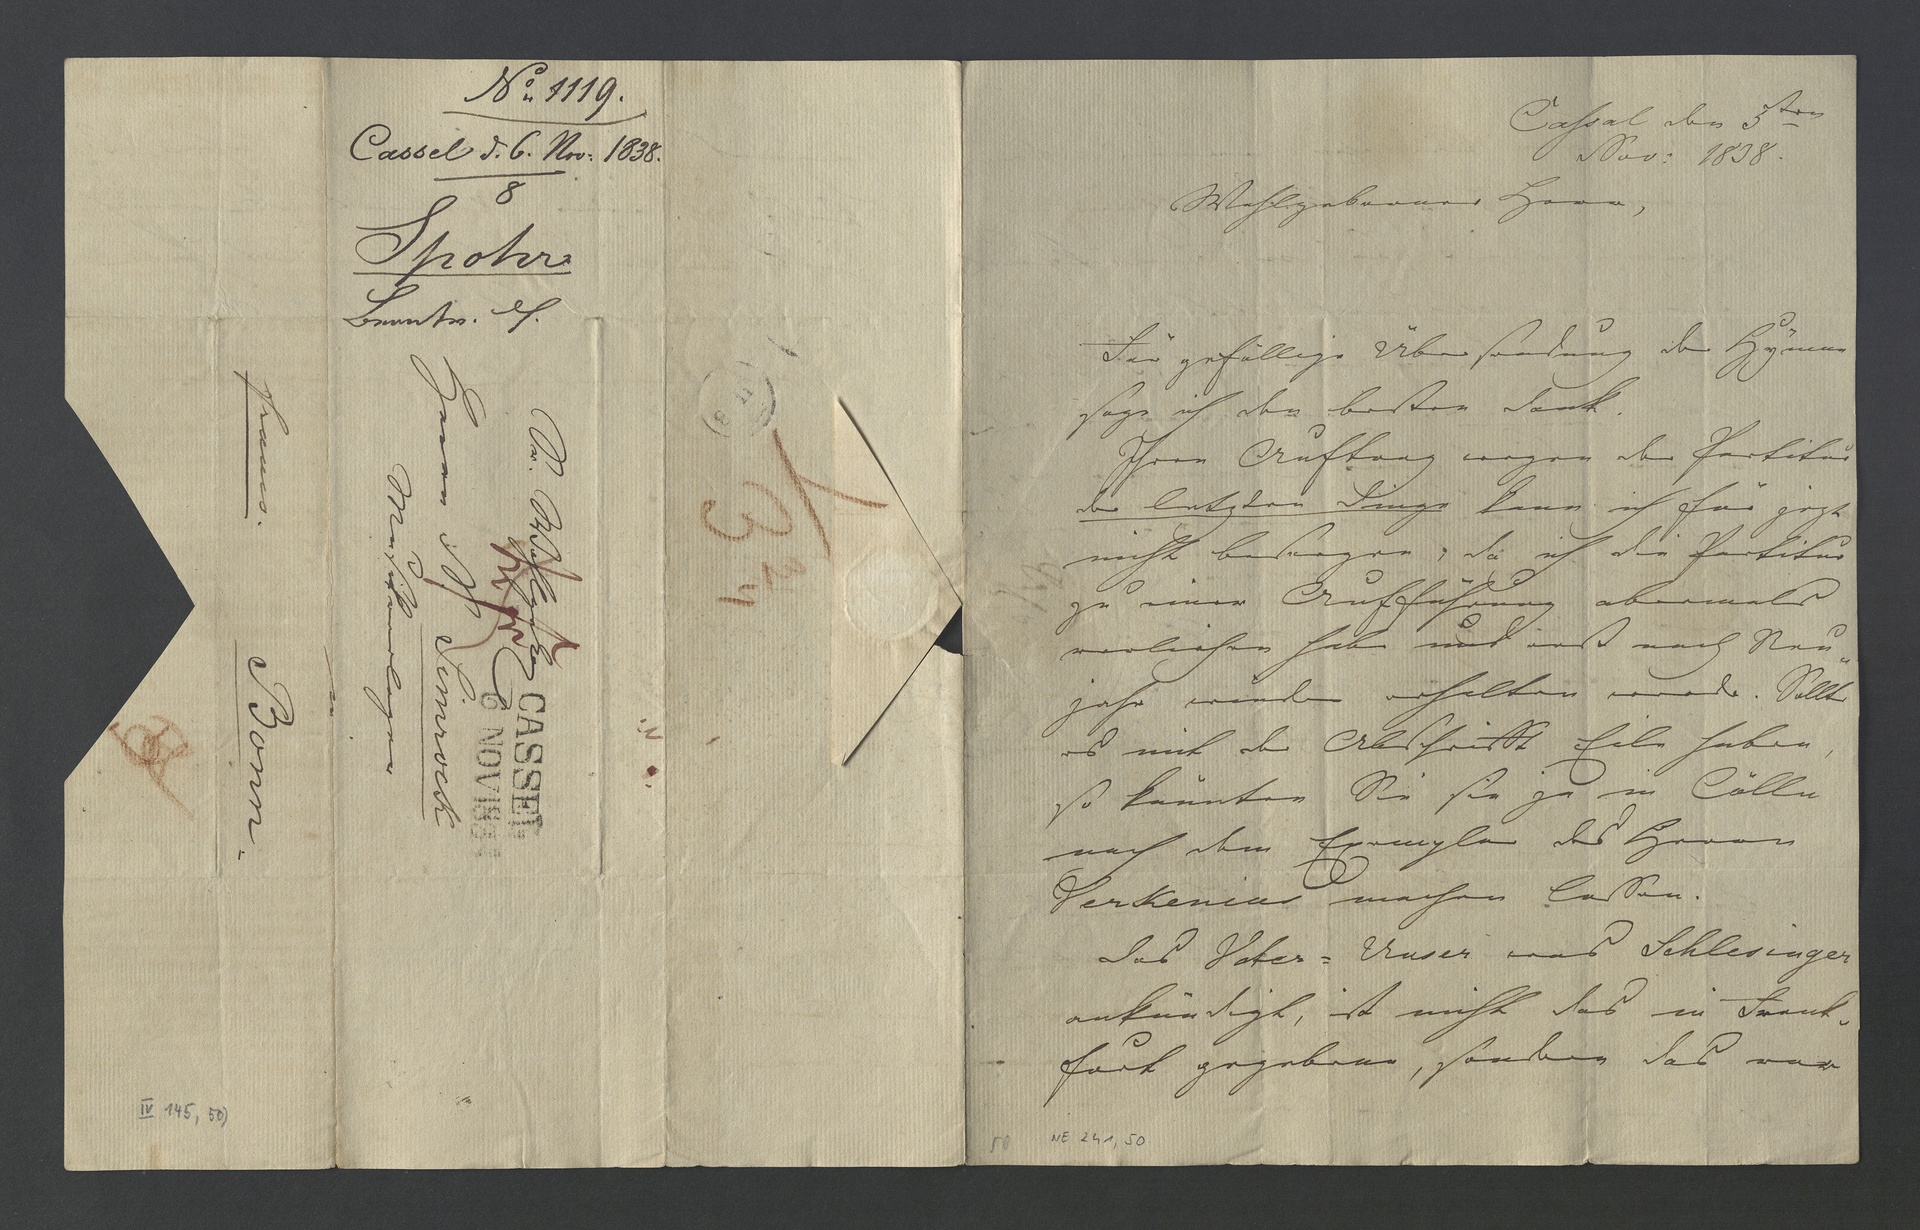 No. 1119.
Cassel d. 6. Nov: 1838.
8
Spohr
franco.
Sr. Wohlgeb.
Herrn Simrock
Musikverleger
Bonn.
CASSEL
6 NOV 1838
IV 145, 50)
Cassel den 5ten
Nov: 1838.
Wohlgeborner Herr,
Für gefällige Übersendung der Hymne
sage ich den besten Dank.
Ihren Auftrag wegen der Partitur
der letzten Dinge kann ich für jetzt
nicht besorgen, da ich die Partitur
zu einer Aufführung abermals
verliehen habe und erst nach Neu-
jahr wieder erhalten werde. Sollte
es mit der Abschrift Eile haben,
so könnten Sie sie ja in Cölln
nach dem Exemplar des Herrn
Verkenius machen lassen.
Das Vater-Unser was Schlesinger
ankündigt, ist nicht das in Frank-
furt gegebene, sondern das von
50 NE 241, 50